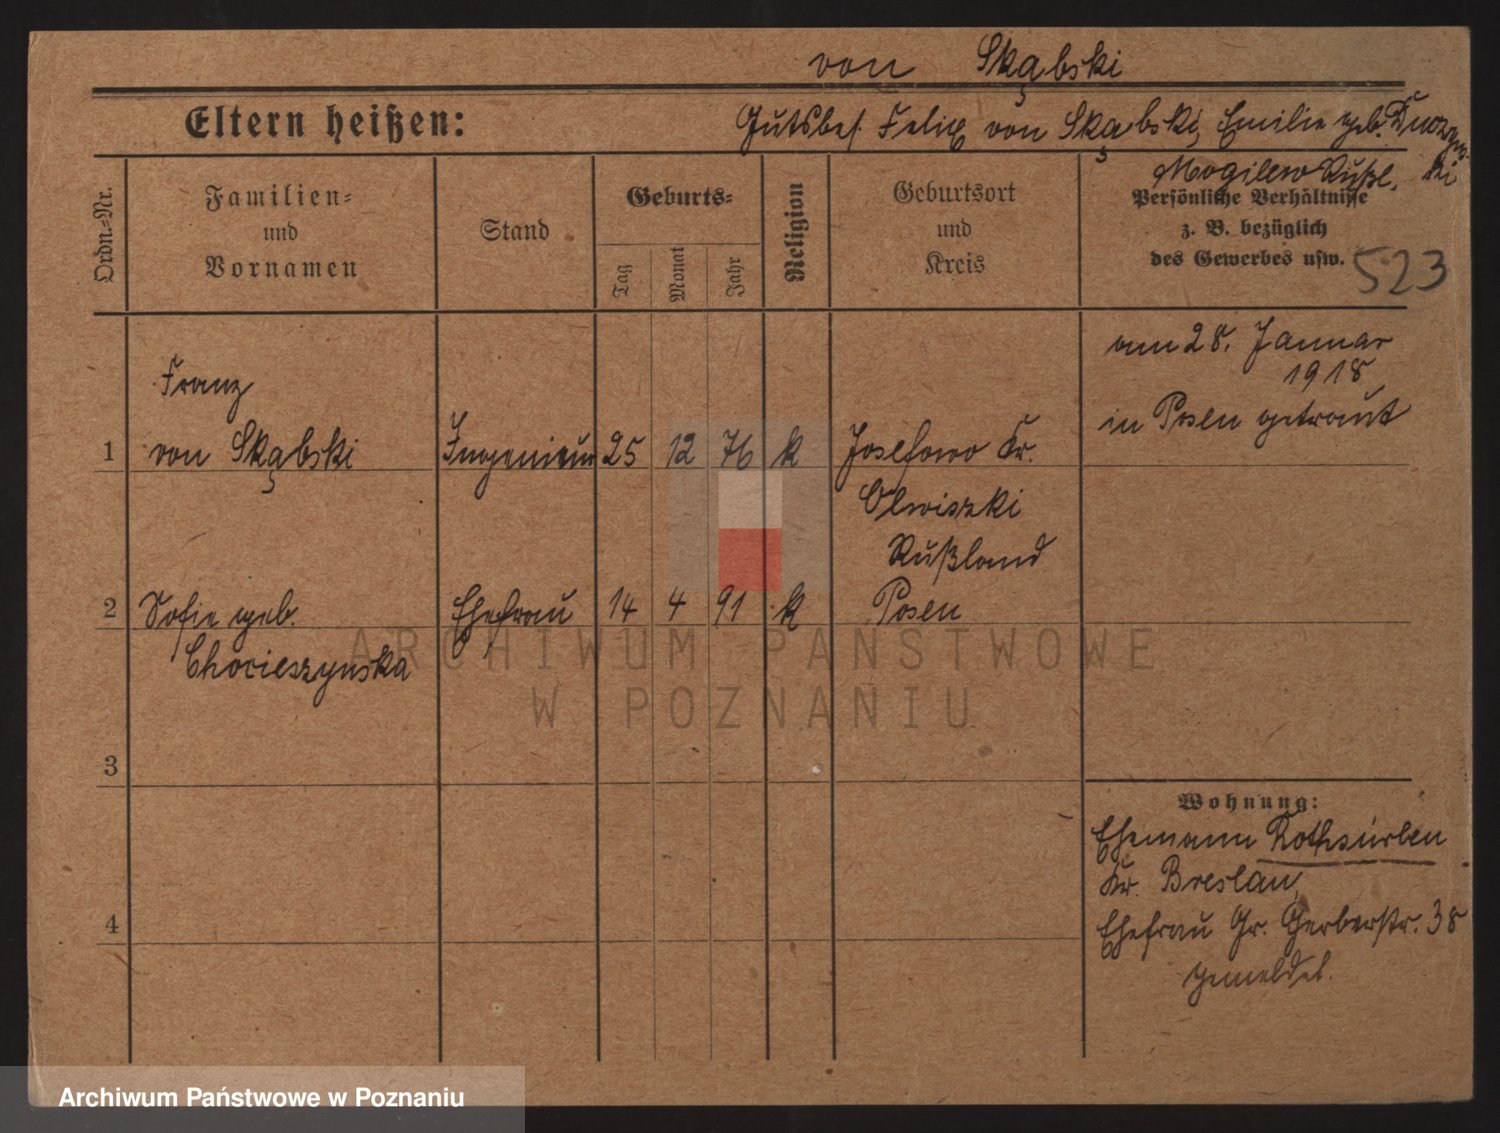 von Skąbski
Eltern heißen: Gutsbes. Felix von Skąbski, Emilie geb.
Mogilew Rußl.
Ordn.=Nr.
Familien=
und
Vornamen
Stand
Geburts=
Tag
Monat
Jahr
Religion
Geburtsort
und
Kreis
Persönliche Verhältnisse
z. B. bezüglich
des Gewerbes usw.
523
am 28. Januar
1918
in Posen getraut
Franz
1 von Skąbski Ingenieur 25 12 76 k Josefowo Kr.
Olwiszki
Rußland
2 Sofie geb. Ehefrau 14 4 91 k Posen
Chocieszynska
3
4
Wohnung:
Ehemann Rothsürben
Kr. Breslau,
Ehefrau Gr. Gerberstr. 38
gemeldet.
ARCHIWUM PAŃSTWOWE
W POZNANIU
Archiwum Państwowe w Poznaniu